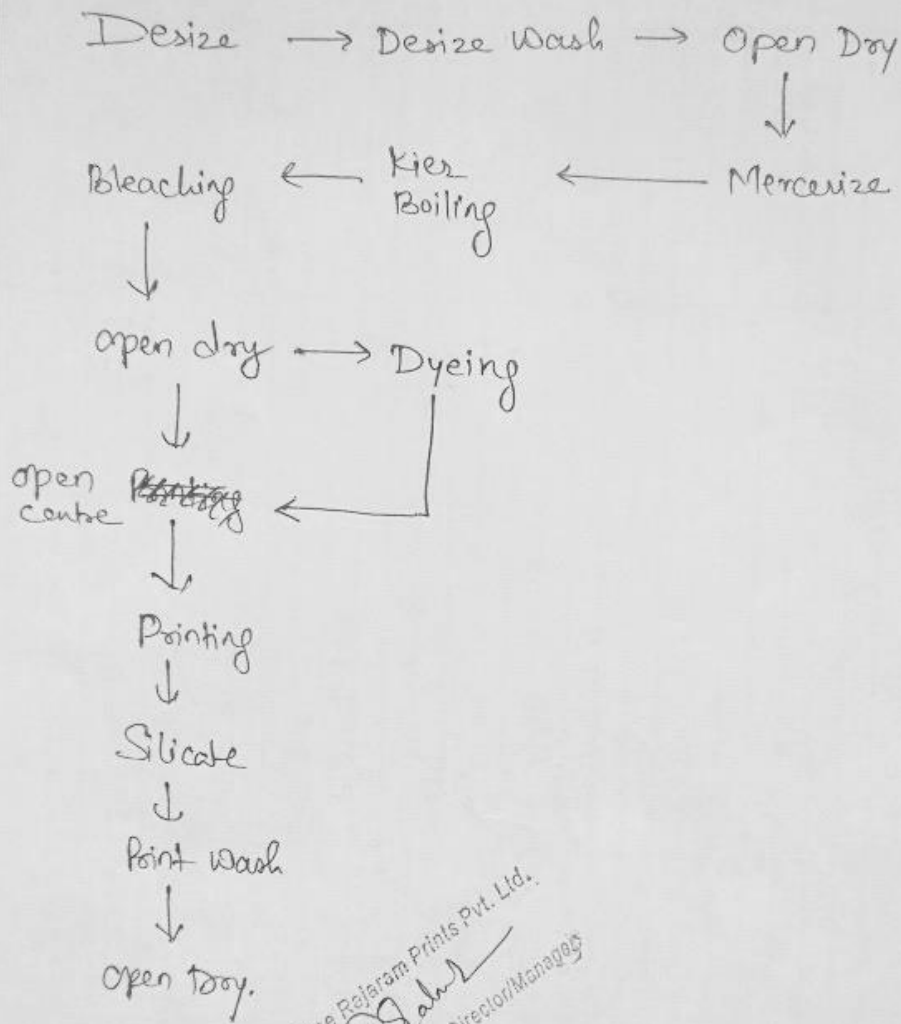 Desize → Desize Wash → Open Dry
Bleaching ← Kier Boiling ← Mercerize
open dry → Dyeing
open centre
Printing
Silicate
Print Wash
Open Dry.
Rajaram Prints Pvt. Ltd.
Director/Manager